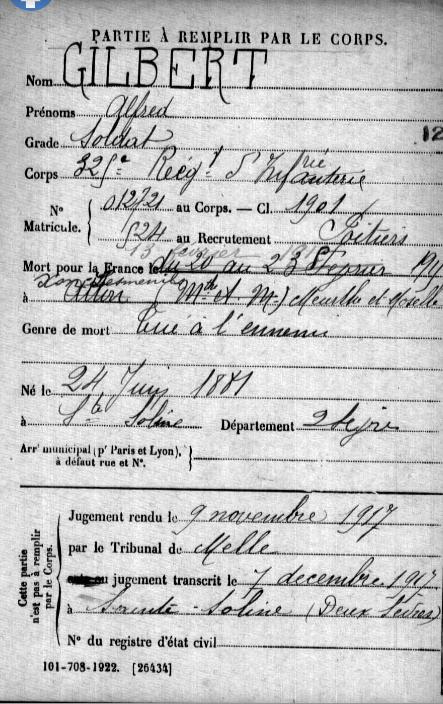 PARTIE À REMPLIR PAR LE CORPS.
Nom GILBERT
Prénoms Alfred
12
Grade Soldat
Corps 325e Régt d'Infanterie
N° Matricule. { 012721 au Corps. — Cl. 1901
1524 au Recrutement Poitiers
13 février
Mort pour la France le du 20 au 23
à Mthe et Mlle) Meurthe et Moselle
Genre de mort Tué à l'ennemi
Né le 24 Juin 1881
à Ste Soline Département 2 Sèvres
Arrt municipal (pr Paris et Lyon), à défaut rue et N°. }
Cette partie n'est pas à remplir par le Corps. {
Jugement rendu le 9 novembre 1917
par le Tribunal de Melle
jugement transcrit le 7 décembre 1917
à Sainte-Soline (Deux Sèvres)
N° du registre d'état civil
101-708-1922. [26434]